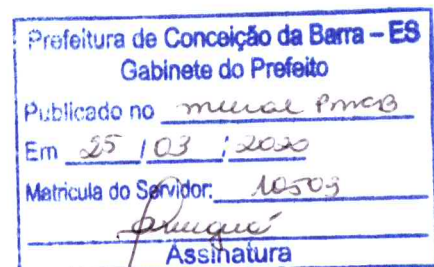 Prefeitura de Conceição da Barra – ES
Gabinete do Prefeito
Publicado no mural PMCB
Em 25 / 03 / 2020
Matricula do Servidor: 10503
Assinatura